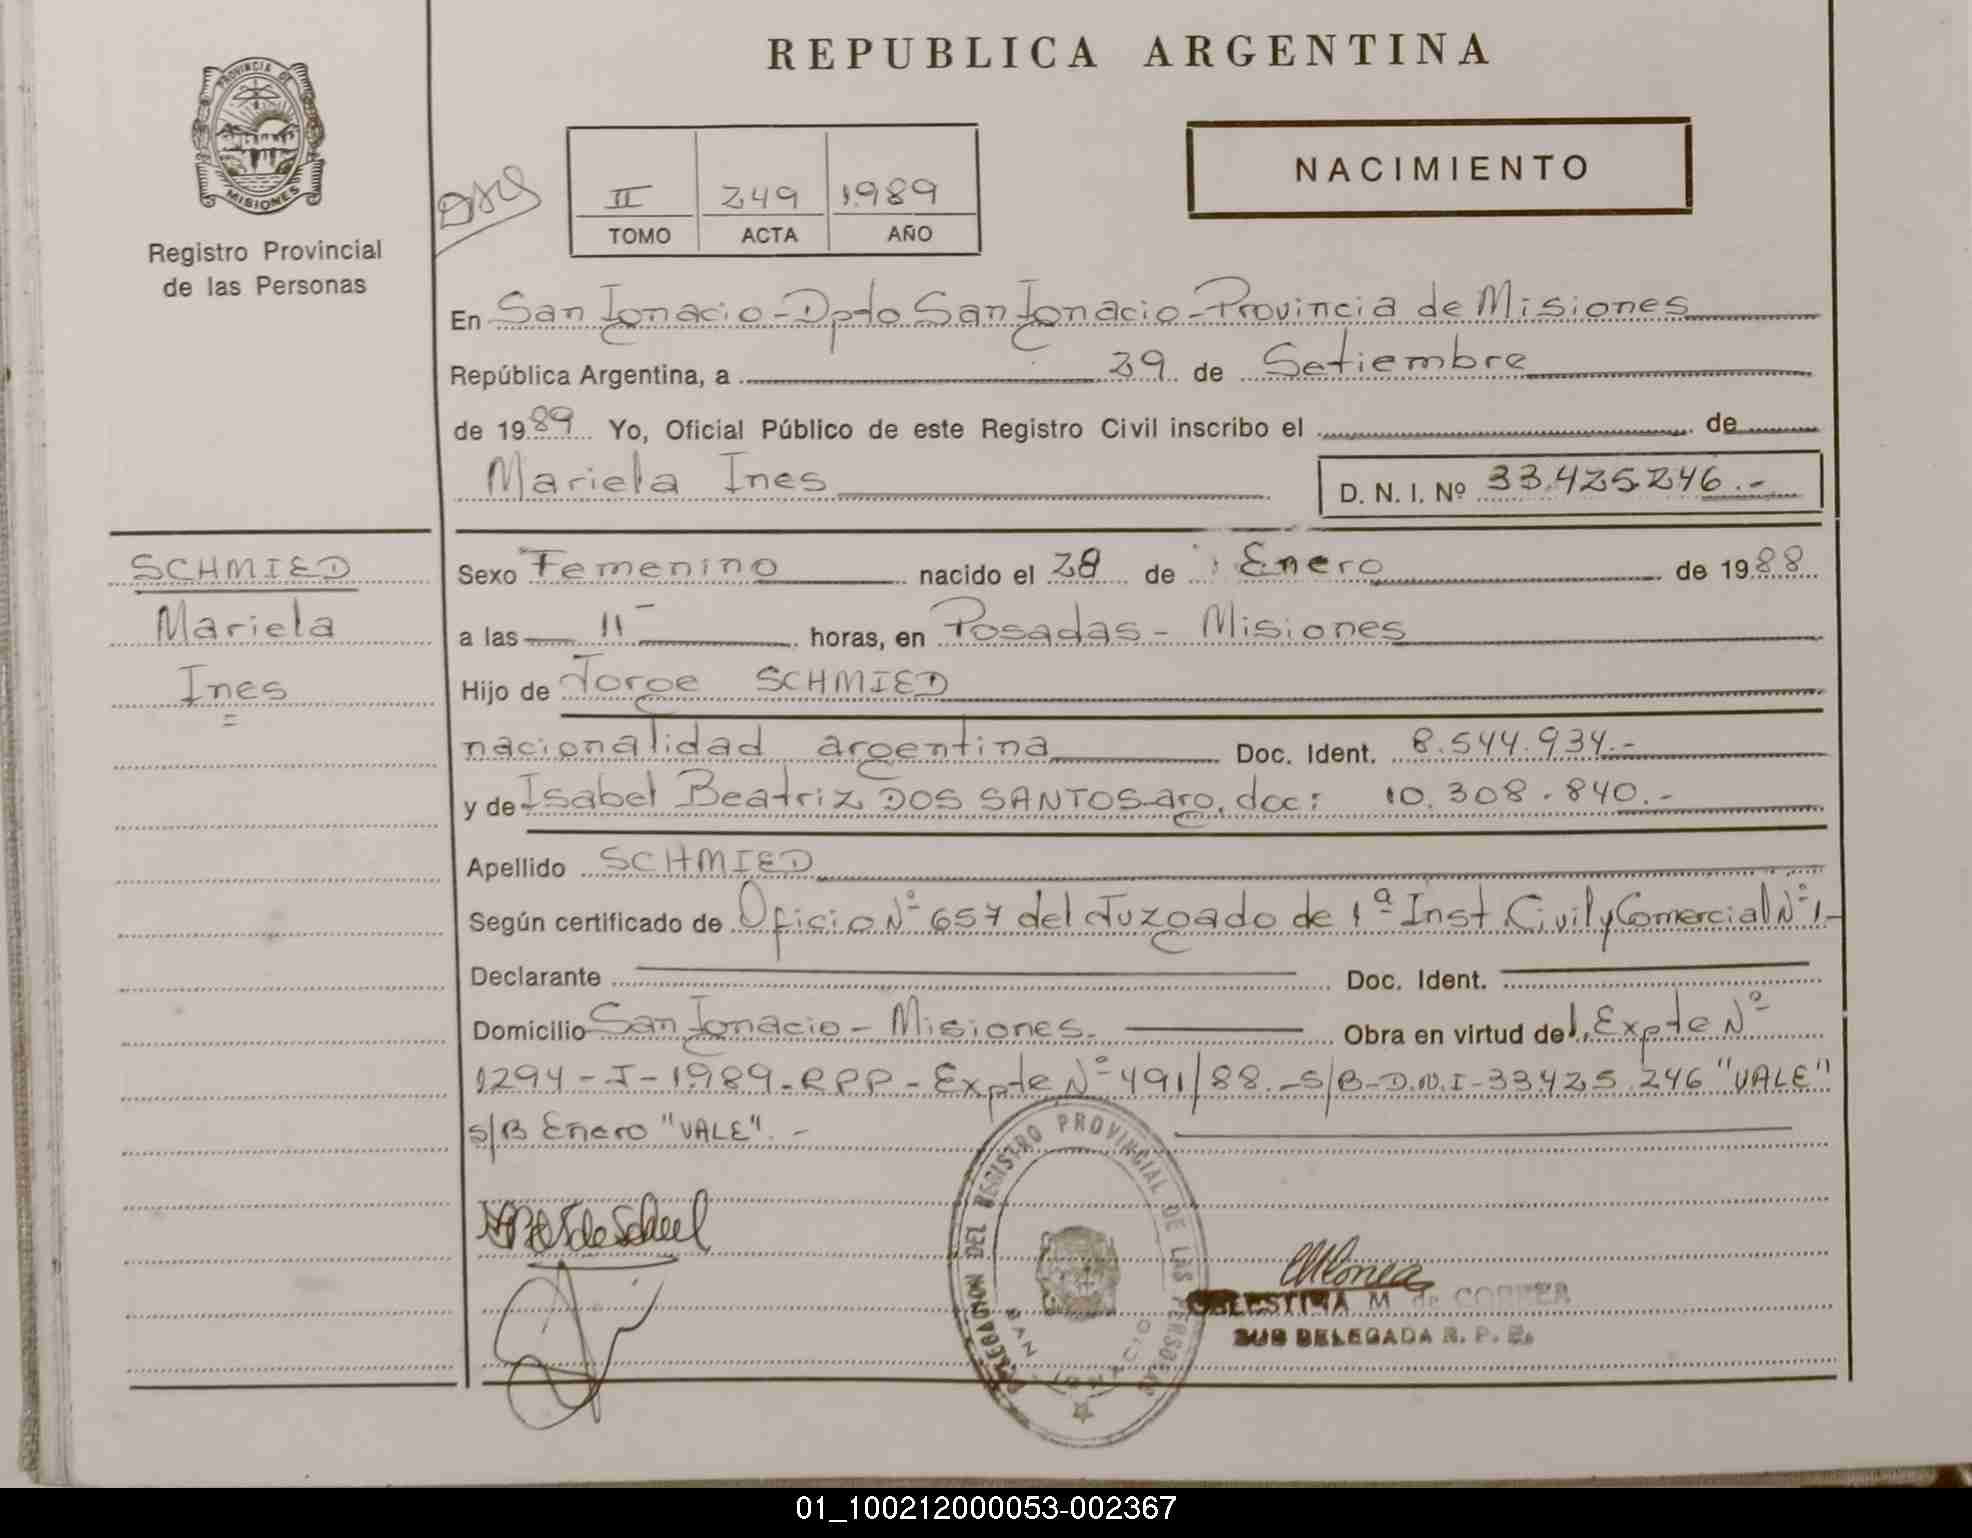 REPUBLICA ARGENTINA
PROVINCIA DE
MISIONES
Registro Provincial
de las Personas
NACIMIENTO
II 249 1989
TOMO ACTA AÑO
En San Ignacio - Dpto San Ignacio - Provincia de Misiones
República Argentina, a 29 de Setiembre
de 1989 Yo, Oficial Público de este Registro Civil inscribo el de
Mariela Ines
D. N. I. Nº 33.425.246.-
SCHMIED
Mariela
Ines
Sexo Femenino nacido el 28 de Enero de 1988
a las 11 horas, en Posadas - Misiones
Hijo de Jorge SCHMIED
nacionalidad argentina Doc. Ident. 8.544.934.-
y de Isabel Beatriz DOS SANTOS-arg. doc: 10.308.840.-
Apellido SCHMIED
Según certificado de Oficio Nº 657 del Juzgado de 1ª Inst Civil y Comercial Nº 1-
Declarante Doc. Ident.
Domicilio San Ignacio - Misiones. Obra en virtud del Expte Nº
1294-I-1989-RPP- Expte Nº 491/88.-S/B-D.N.I-33.425.246 "VALE"
S/B Enero "VALE". -
DEL REGISTRO PROVINCIAL DE LAS PERSONAS
SAN IGNACIO
CELESTINA M. de CORREA
SUB DELEGADA R. P. P.
01_100212000053-002367